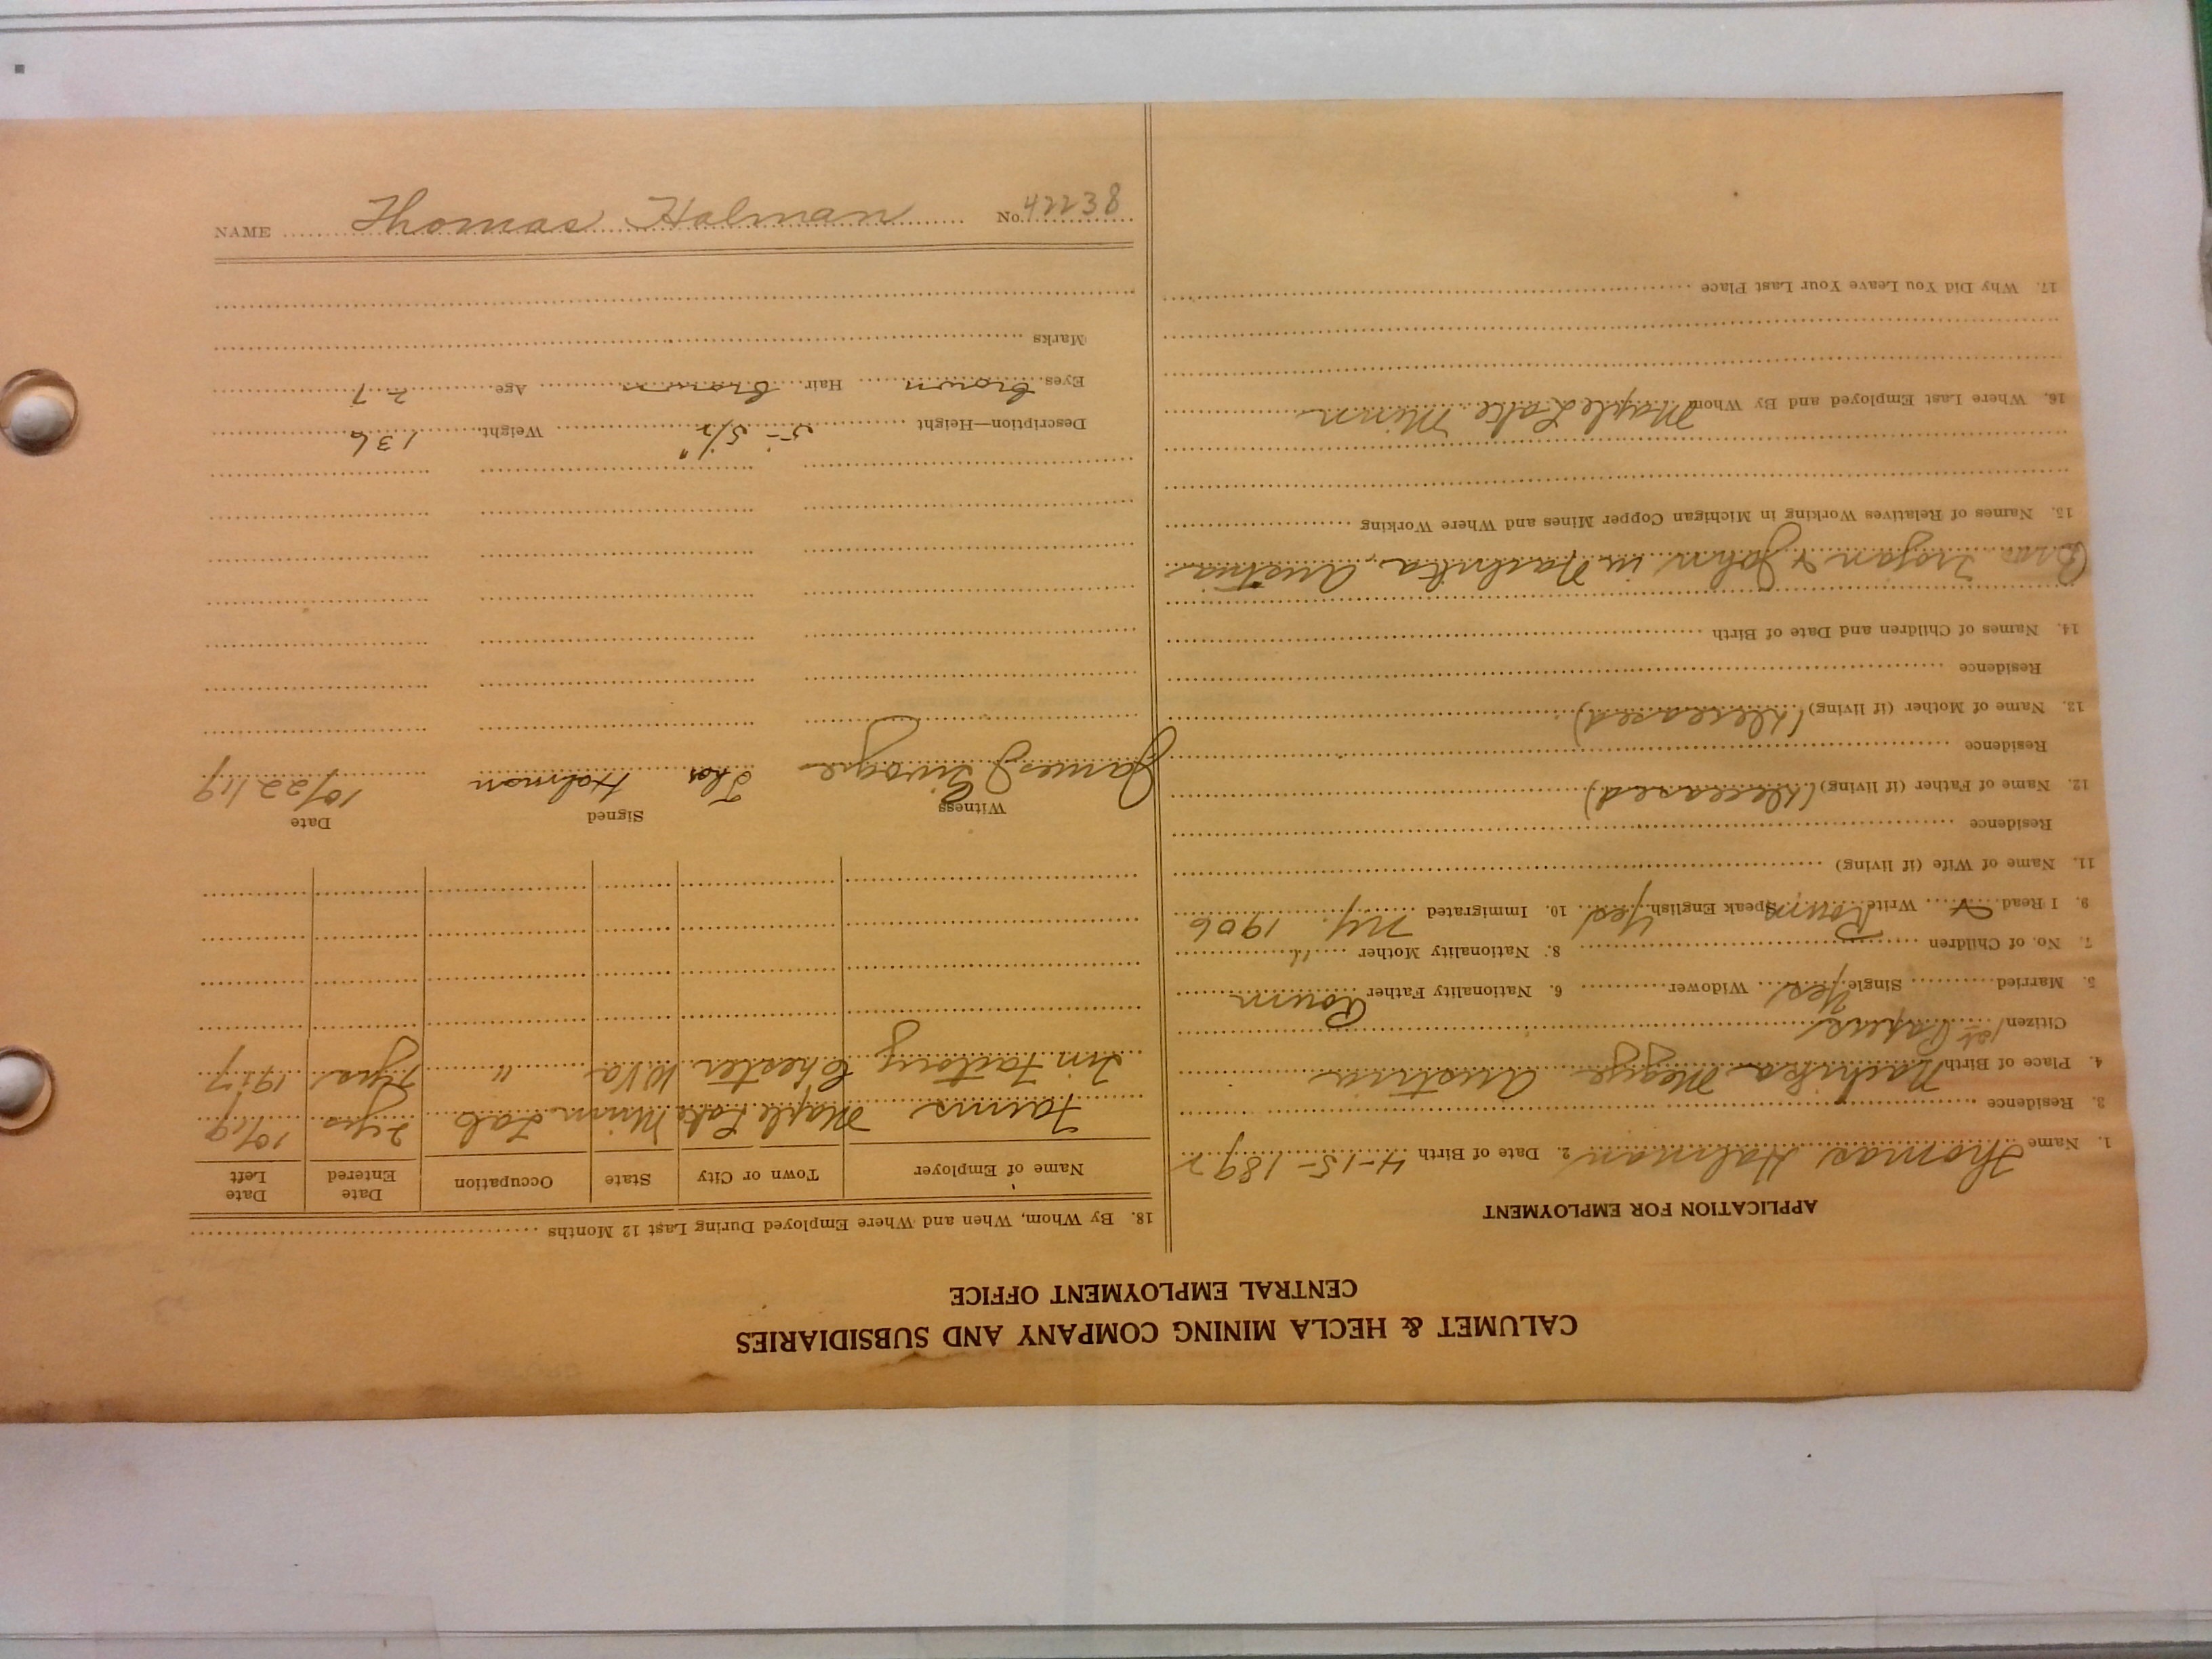 CALUMET & HECLA MINING COMPANY AND SUBSIDIARIES
CENTRAL EMPLOYMENT OFFICE
APPLICATION FOR EMPLOYMENT
1. Name Thomas Halman 2. Date of Birth 4-15-1892
3. Residence
4. Place of Birth Austria
Citizen 1st Papers
5. Married Single Yes Widower 6. Nationality Father Roum
7. No. of Children 8. Nationality Mother "
9. I Read & Write Roum Speak English Yes 10. Immigrated N.Y. 1906
11. Name of Wife (if living)
Residence
12. Name of Father (if living) (Deceased)
Residence
13. Name of Mother (if living) (Deceased)
Residence
14. Names of Children and Date of Birth
Bros Trojan & John in Austria
15. Names of Relatives Working in Michigan Copper Mines and Where Working
16. Where Last Employed and By Whom Maple Lake Minn
17. Why Did You Leave Your Last Place
18. By Whom, When and Where Employed During Last 12 Months
Name of Employer Town or City State Occupation Date Entered Date Left
Farms Maple Lake Minn Lab 2 yrs 10/19
Tin Factory Chester W Va " yrs 1917
Witness Signed Date
James Thos Halman 10/22/19
Description—Height 5-5½" Weight 136
Eyes brown Hair brown Age 27
Marks
NAME Thomas Halman No. 42238